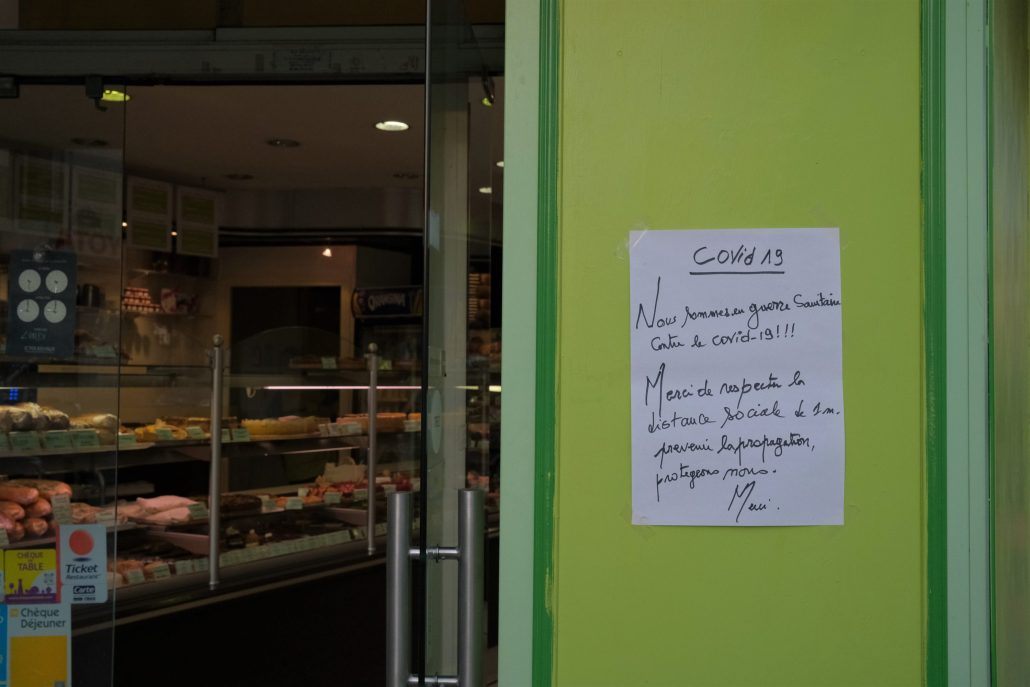 Covid 19
Nous sommes en guerre Sanitaire
Contre le covid-19!!!
Merci de respecter la
distance sociale de 1m.
prevenir la propagation,
protegeons nous.
Merci.
ORANGINA
CHÈQUE DE
TABLE
Ticket
Restaurant
Carte
Chèque
Déjeuner